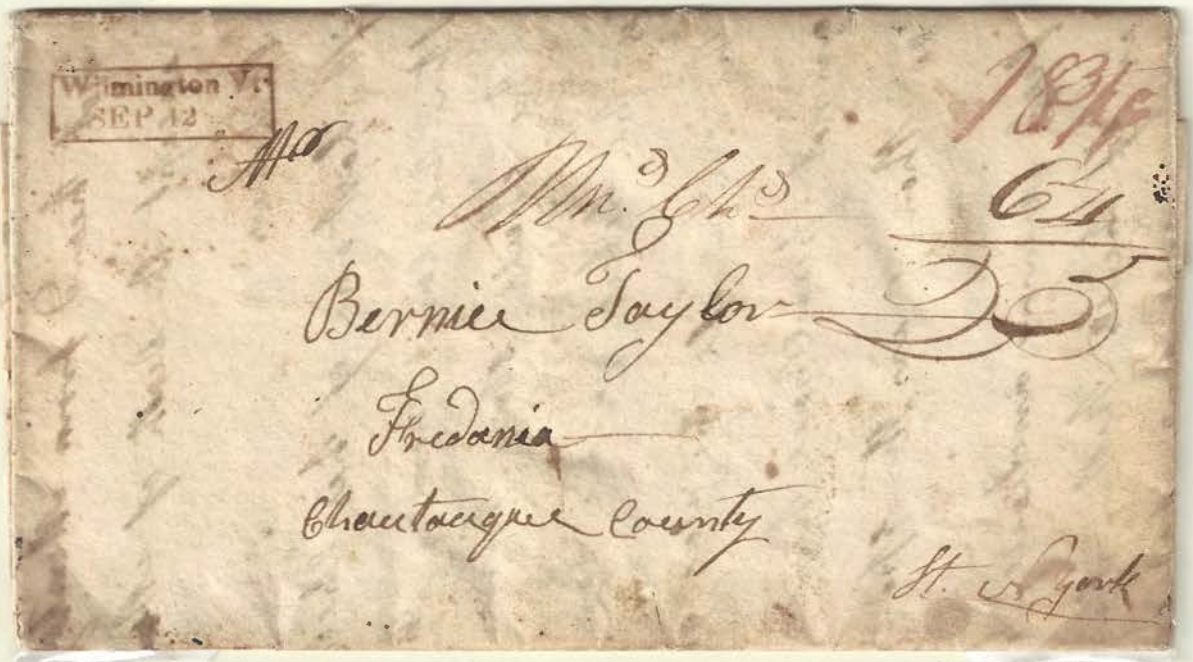 Wilmington Vt.
SEP 12
18 3/4 c
Mr
6 1/4
25
Bernice Taylor
Fredonia
Chautauque County
St. N York